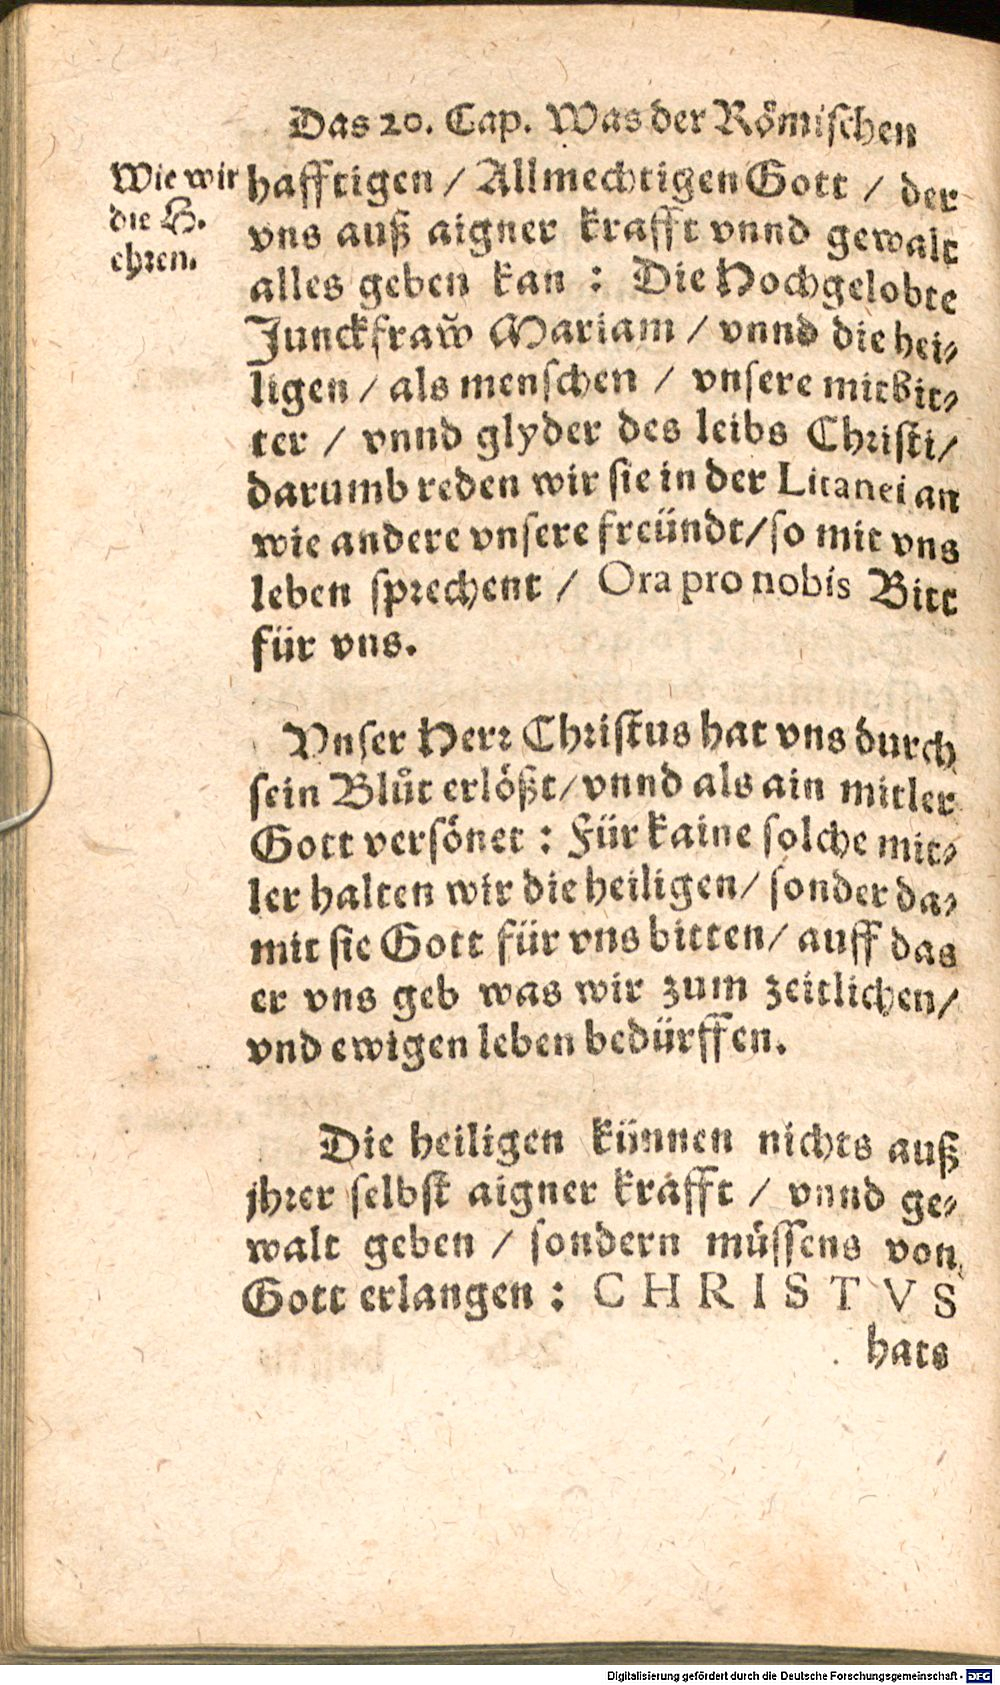 Das 20. Cap. Was der Römischen
Wie wir
die H.
ehren.
hafftigen / Allmechtigen Gott / der
vns auß aigner krafft vnnd gewalt
alles geben kan : Die Hochgelobte
Junckfraw̃ Mariam / vnnd die hei⸗
ligen / als menschen / vnsere mitbit⸗
ter / vnnd glyder des leibs Christi/
darumb reden wir sie in der Litanei an
wie andere vnsere freündt/so mit vns
leben sprechent / Ora pro nobis Bitt
für vns.
Vnser Herr Christus hat vns durch
sein Blůt erlößt/vnnd als ain mitler
Gott versönet : Für kaine solche mit⸗
ler halten wir die heiligen/ sonder da⸗
mit sie Gott für vns bitten/ auff das
er vns geb was wir zum zeitlichen/
vnd ewigen leben bedürffen.
Die heiligen künnen nichts auß
jhrer selbst aigner kräfft / vnnd ge⸗
walt geben / sondern müssens von
Gott erlangen : CHRISTVS
hats
Digitalisierung gefördert durch die Deutsche Forschungsgemeinschaft - DFG